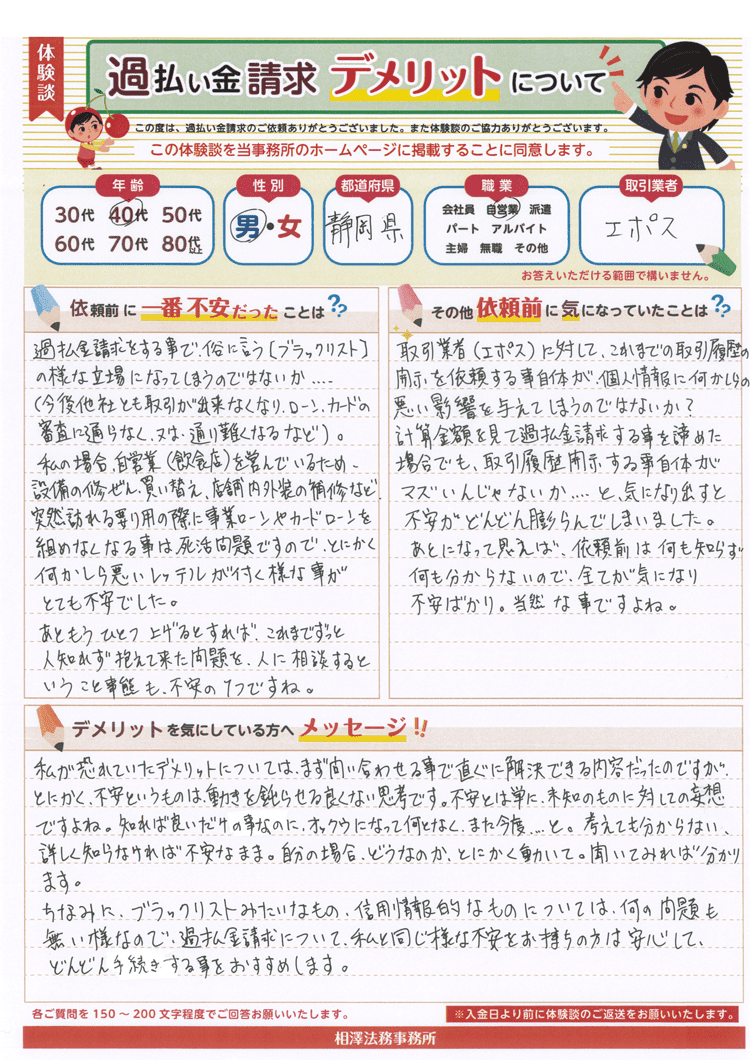 体験談
過払い金請求 デメリットについて
この度は、過払い金請求のご依頼ありがとうございました。また体験談のご協力ありがとうございます。
この体験談を当事務所のホームページに掲載することに同意します。
年齢
30代 40代 50代
60代 70代 80代以上
性別
男・女
都道府県
静岡県
職業
会社員 自営業 派遣
パート アルバイト
主婦 無職 その他
取引業者
エポス
お答えいただける範囲で構いません。
依頼前に一番不安だったことは??
過払金請求をする事で、俗に言う[ブラックリスト]
の様な立場になってしまうのではないか....
(今後他社とも取引が出来なくなり、ローン、カードの
審査に通らなく、又は、通り難くなるなど)。
私の場合、自営業(飲食店)を営んでいるため、
設備の修ぜん、買い替え、店舗内外装の補修など、
突然訪れる要り用の際に事業ローンやカードローンを
組めなくなる事は死活問題ですので、とにかく
何かしら悪いレッテルが付く様な事が
とても不安でした。
あともうひとつ上げるとすれば、これまでずっと
人知れず抱えて来た問題を、人に相談すると
いうこと事態も、不安の1つですね。
その他依頼前に気になっていたことは??
取引業者(エポス)に対して、これまでの取引履歴の
開示を依頼する事自体が、個人情報に何かしらの
悪い影響を与えてしまうのではないか?
計算金額を見て過払金請求する事を諦めた
場合でも、取引履歴開示する事自体が
マズいんじゃないか....と、気になり出すと
不安がどんどん膨らんでしまいました。
あとになって思えば、依頼前は何も知らず
何も分からないので、全てが気になり
不安ばかり。当然な事ですよね。
デメリットを気にしている方へメッセージ!!
私が恐れていたデメリットについては、まず問い合わせる事で直ぐに解決できる内容だったのですが、
とにかく、不安というものは、動きを鈍らせる良くない思考です。不安とは単に、未知のものに対しての妄想
ですよね。知れば良いだけの事なのに、オックウになって何となく、また今度....と。考えても分からない、
詳しく知らなければ不安なまま。自分の場合、どうなのか、とにかく動いて。聞いてみれば分かり
ます。
ちなみに、ブラックリストみたいなもの、信用情報的なものについては、何の問題も
無い様なので、過払金請求について、私と同じ様な不安をお持ちの方は安心して、
どんどん手続きする事をおすすめします。
各ご質問を150～200文字程度でご回答お願いいたします。
※入金日より前に体験談のご返送をお願いいたします。
相澤法務事務所